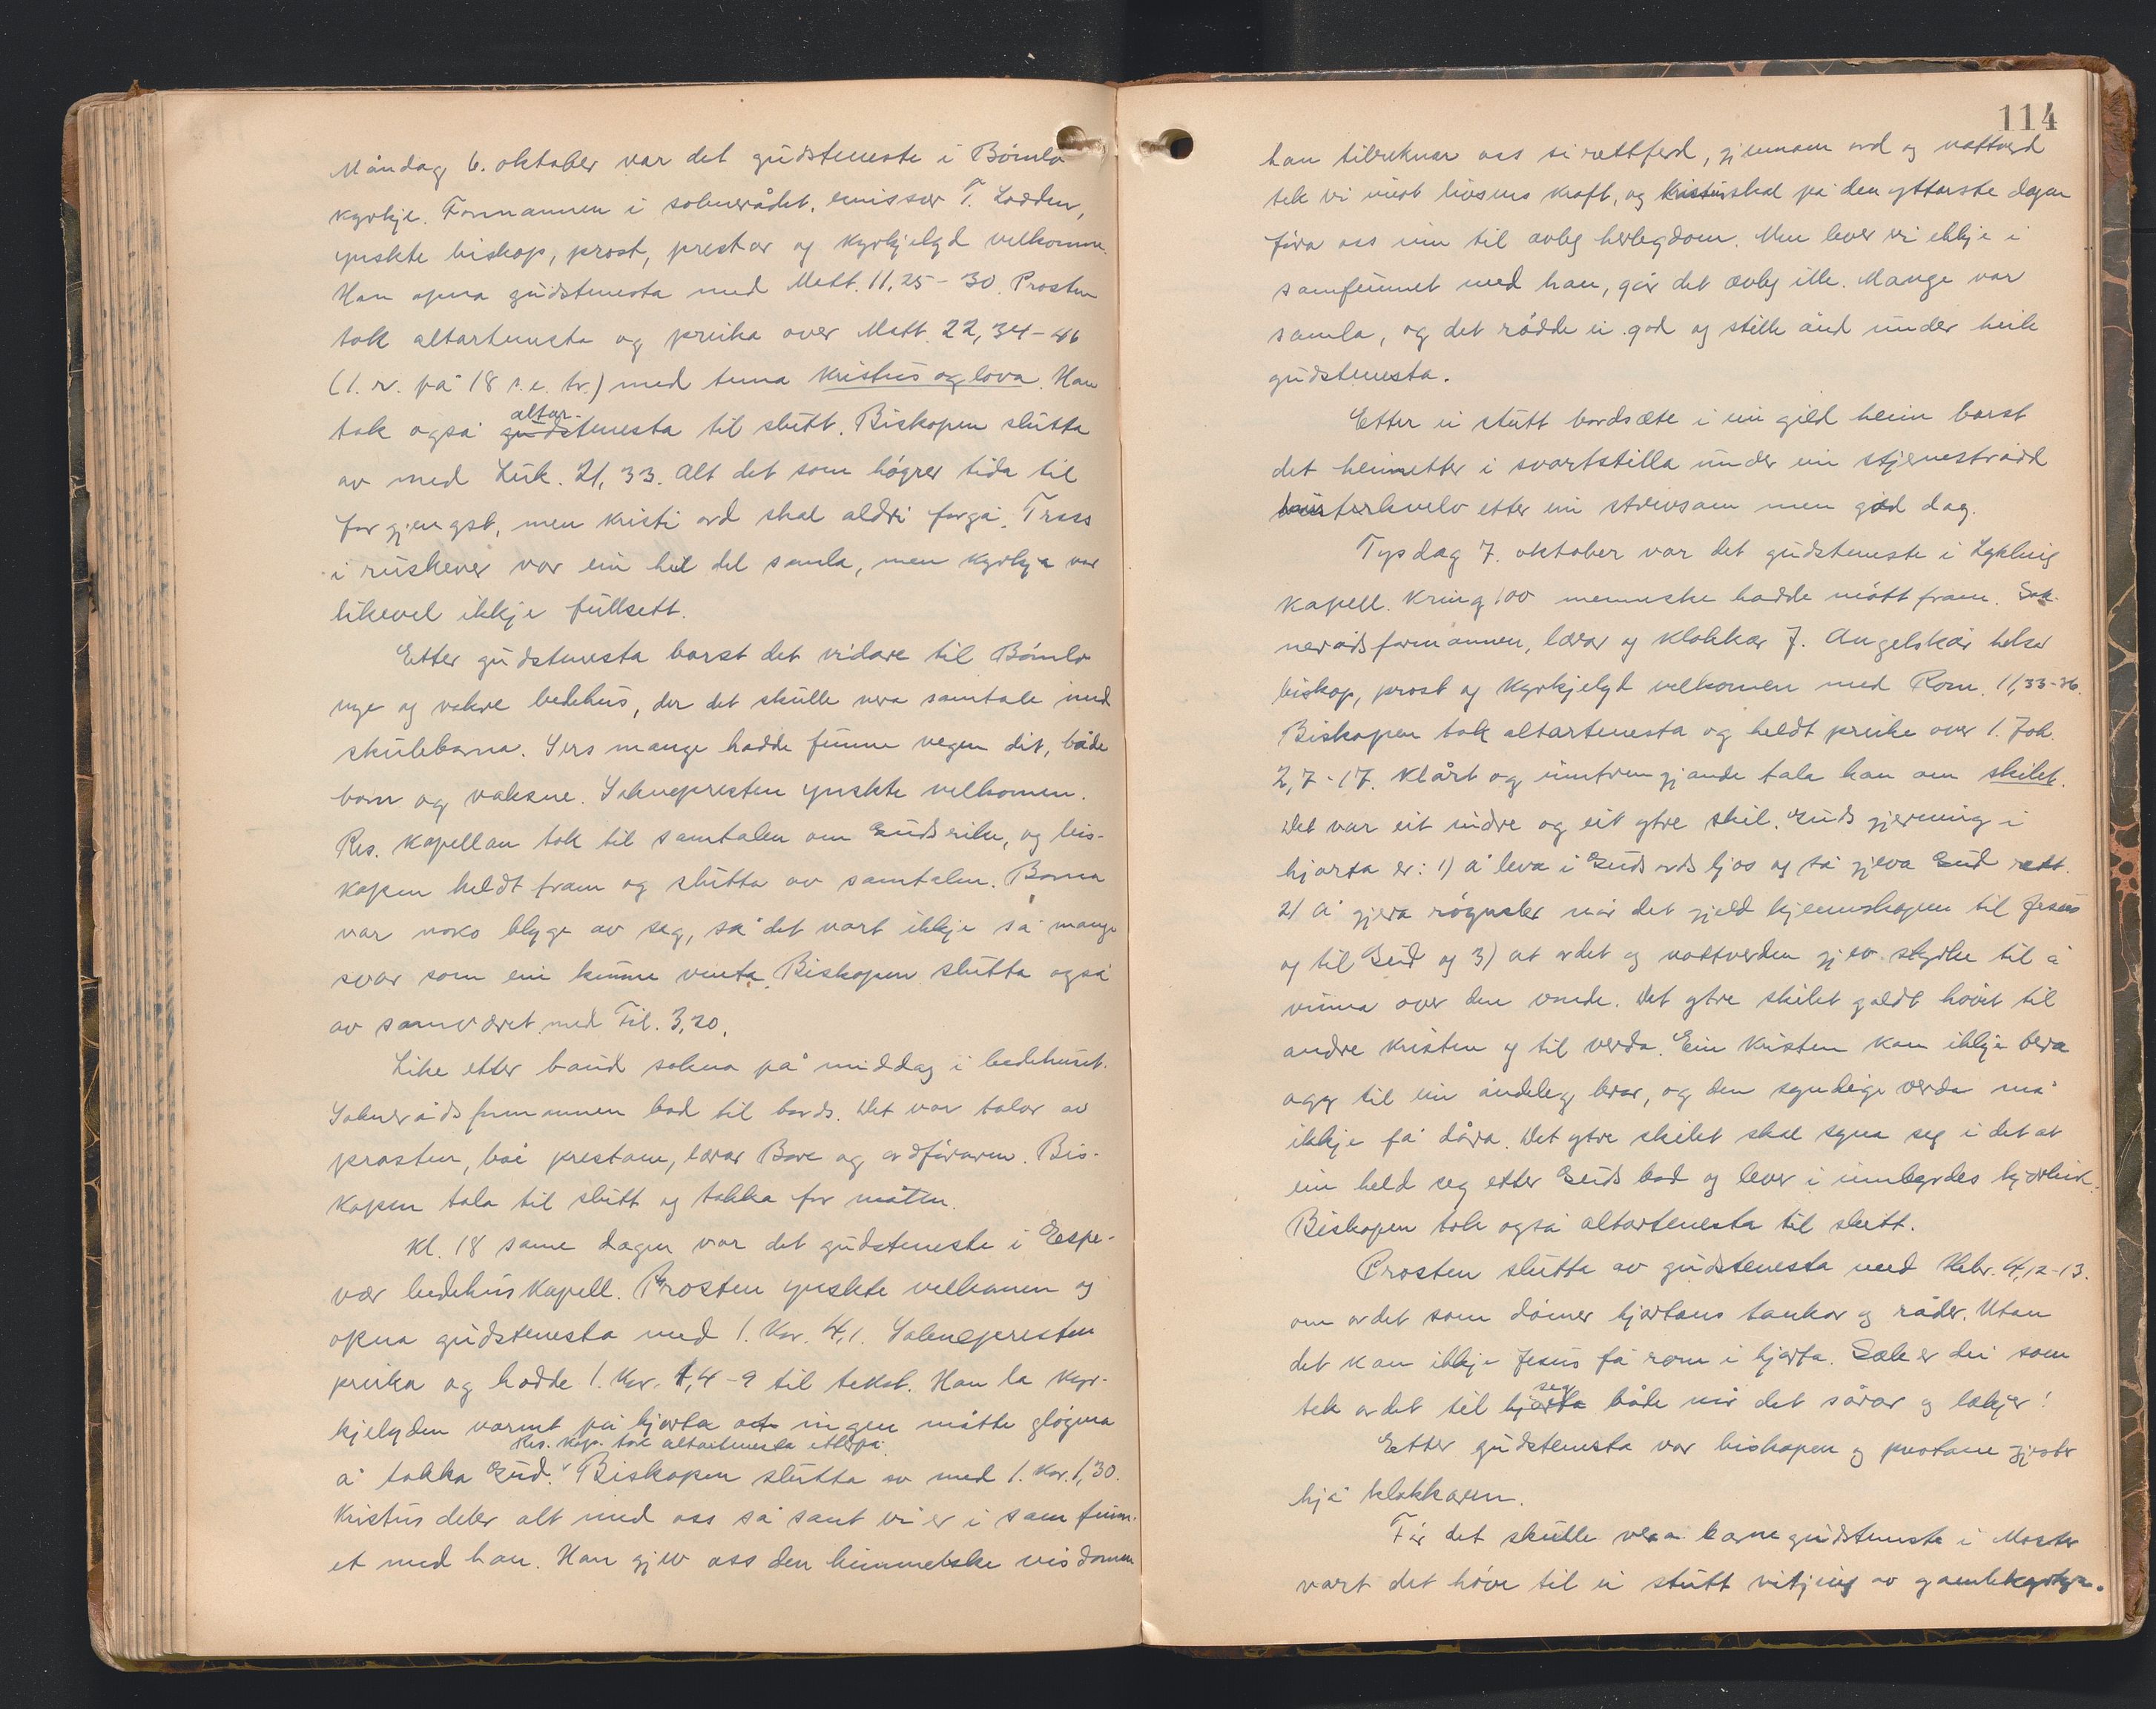 Måndag 6. oktober var det gudsteneste i Bömlo
kyrkje. Formannen i soknerådet, emissær T. Lodden,
ynskte biskop, prost, prestar og kyrkjelyd velkomne.
Han opna gudstenesta med Matt. 11,25-30. Prosten
tok altartenesta og preika over Matt. 22,34-46
(1. r. på 18 s.e. tr.) med tema Kristus og lova. Han
tok også altartenesta til slutt. Biskopen slutta
av med Luk. 21,33. Alt det som höyrer tida til
forgjengst, men Kristi ord skal aldri forgå. Tross
i ruskever var ein heil del samla, men kyrkja var
likevel ikkje fullsett.
Etter gudstenesta barst det vidare til Bömlo
nye og vakre bedehus, der det skulle vera samtale med
skuleborna. Svers mange hadde funne vegen dit, både
born og vaksne. Soknepresten ynskte velkomen.
Res. kapellan tok til samtalen om Guds rike, og bis-
kopen heldt fram og slutta av samtalen. Borna
var noko blyge av seg, så det vart ikkje så mange
svar som ein kunne venta. Biskopen slutta også
av samværet med Fil. 3,20.
Like etter baud sokna på middag i bedehuset.
Soknerådsformannen bad til bords. Det var talar av
prosten, båe prestane, lærar Bore og ordföraren. Bis-
kopen tala til slutt og takka for maten.
Kl. 18 same dagen var det gudsteneste i Espe-
vær bedehuskapell. Prosten ynskte velkomen og
opna gudstenesta med 1. Kor. 4,1. Soknepresten
preika og hadde 1. Kor. 1,4-9 til tekst. Han la kyr-
kjelyden varmt på hjarta at ingen måtte glöyma
Res. kap. tok altartenesta etterpå.
å takka Gud. Biskopen slutta av med 1. Kor. 1,30.
Kristus deler alt med oss så sant vi er i samfunn-
et med han. Han gjev oss den himmelske visdomen
114
han tilreknar oss si rettferd, gjennom ord og nattverd
tek vi imot livsens kraft, og Kristus skal på den ytterste dagen
föra oss inn til æveleg herlegdom. Men lever vi ikkje i
samfunnet med han, går det æveleg ille. Mange var
samla, og det rådde ei god og stille ånd under heile
gudstenesta.
Etter ei stutt bordsete i ein gild heim barst
det heimetter i svartstilla under ein stjernestrådd
vinterkvelv etter ein strevsam men god dag.
Tysdag 7. oktober var det gudsteneste i Lykling
kapell. Kring 100 menneske hadde mött fram. Sok-
nerådsformannen, lærar og klokkar J. Angelskår helsa
biskop, prost og kyrkjelyd velkomen med Rom. 11,33-36.
Biskopen tok altartenesta og heldt preike over 1. Joh.
2,7-17. Klårt og inntrengjande tala han om skilet.
Det var eit indre og eit ytre skil. Guds gjerning i
hjarta er: 1) å leva i Guds ords ljos og så gjeva Gud rett.
2) Å gjera röynsler når det gjeld kjennskapen til Jesus
og til Gud og 3) at ordet og nattverden gjev styrke til å
vinna over den vonde. Det ytre skilet galdt hövet til
andre kristne og til verda. Ein kristen kan ikkje bera
agg til ein åndeleg bror, og den syndige verda må
ikkje få dåra. Det ytre skilet skal syna seg i det at
ein held seg etter Guds bod og lever i innbyrdes kjærleik.
Biskopen tok også altartenesta til slutt.
Prosten slutta av gudstenesta med Hebr. 4,12-13.
om ordet som dömer hjartans tankar og råder. Utan
det kan ikkje Jesus få rom i hjarta. Sæle er dei som
tek ordet til seg både når det sårar og lækjer!
Etter gudstenesta var biskopen og prestane gjester
hjå klokkaren.
För det skulle vera barnegudsteneste i Moster
vart det höve til ei stutt vitjing av gamlekyrkja.